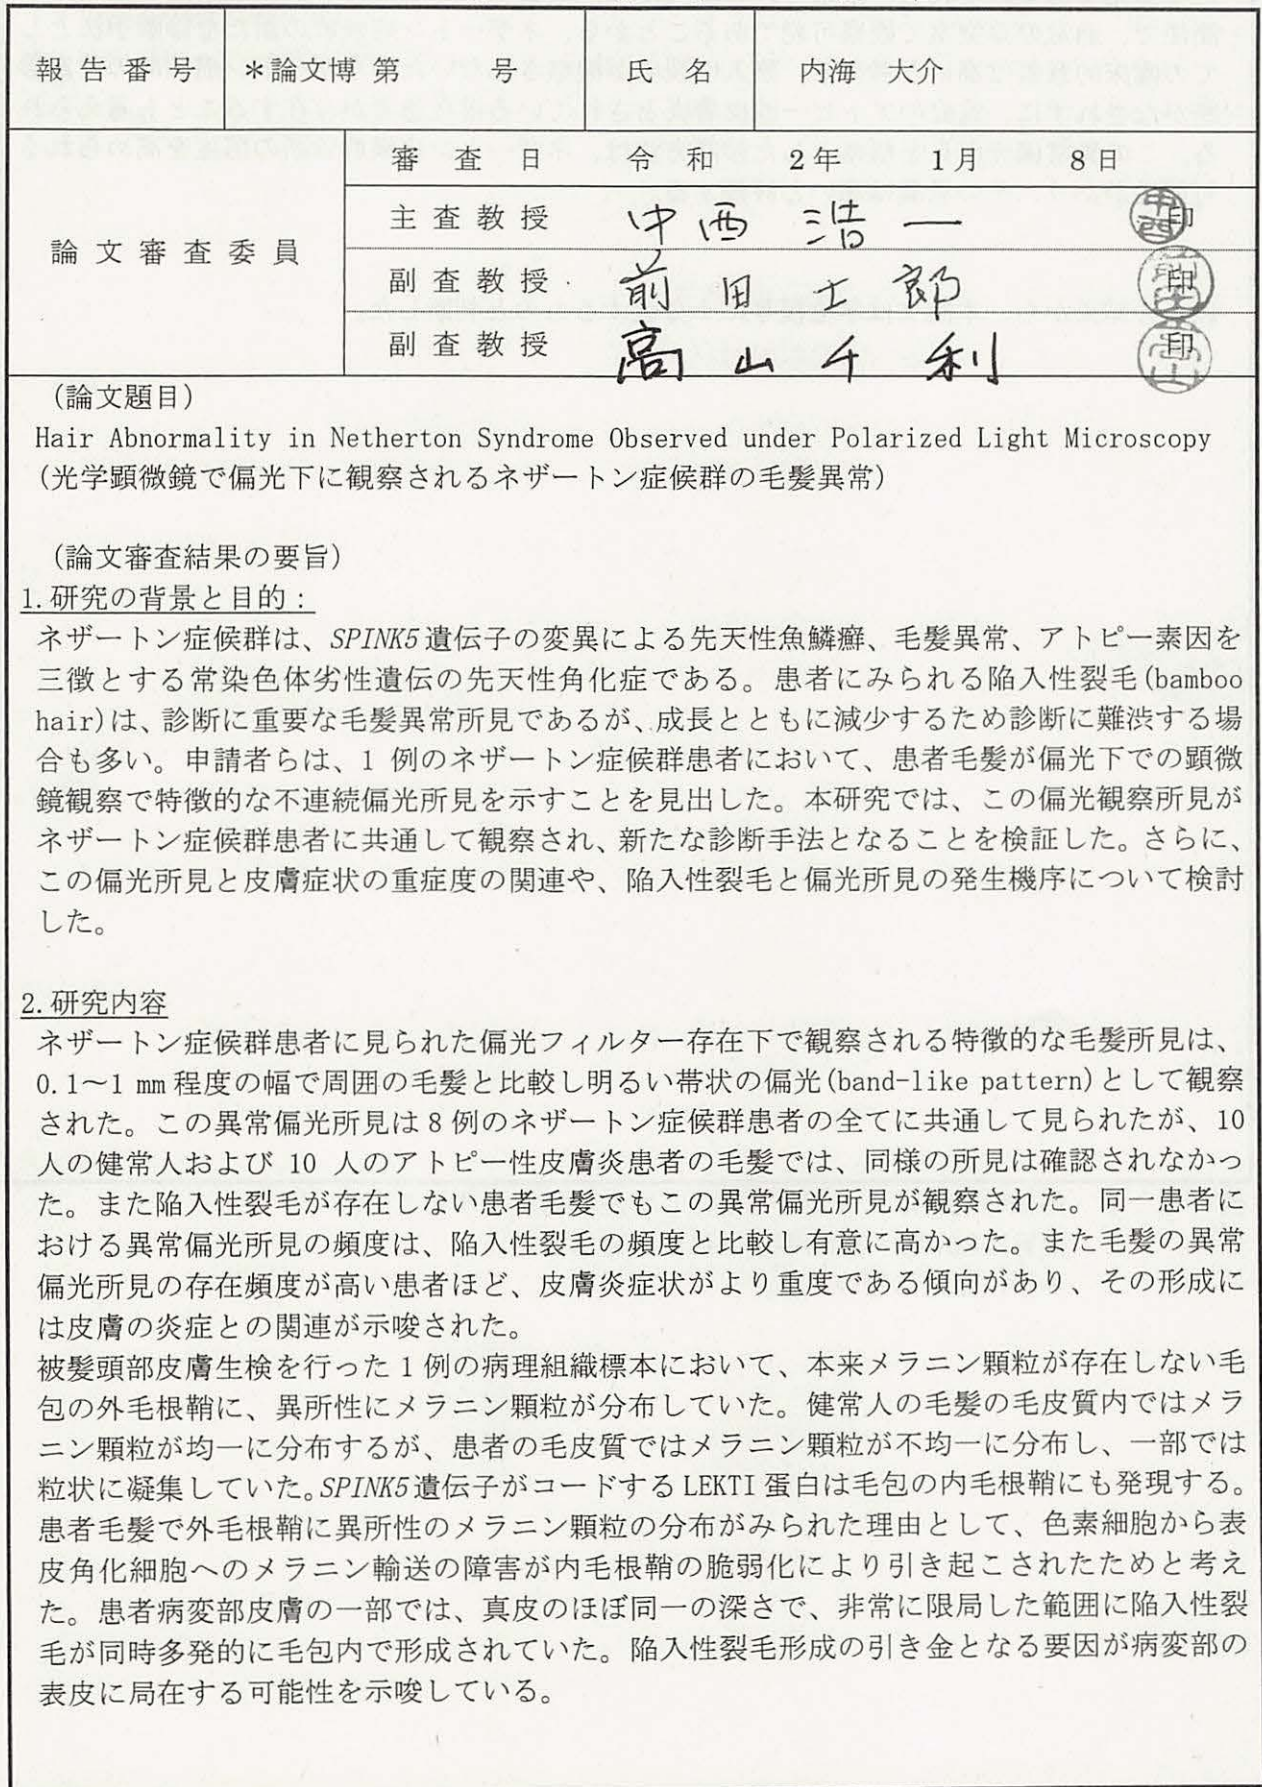 報告番号 ＊論文博 第 号 氏名 内海 大介
審査日 令和 2年 1月 8日
論文審査委員
主査教授 中西 浩一 印
副査教授 前田士郎 印
副査教授 高山千利 印
（論文題目）
Hair Abnormality in Netherton Syndrome Observed under Polarized Light Microscopy
（光学顕微鏡で偏光下に観察されるネザートン症候群の毛髪異常）
（論文審査結果の要旨）
1.研究の背景と目的：
ネザートン症候群は、SPINK5遺伝子の変異による先天性魚鱗癬、毛髪異常、アトピー素因を
三徴とする常染色体劣性遺伝の先天性角化症である。患者にみられる陥入性裂毛(bamboo
hair)は、診断に重要な毛髪異常所見であるが、成長とともに減少するため診断に難渋する場
合も多い。申請者らは、1 例のネザートン症候群患者において、患者毛髪が偏光下での顕微
鏡観察で特徴的な不連続偏光所見を示すことを見出した。本研究では、この偏光観察所見が
ネザートン症候群患者に共通して観察され、新たな診断手法となることを検証した。さらに、
この偏光所見と皮膚症状の重症度の関連や、陥入性裂毛と偏光所見の発生機序について検討
した。
2.研究内容
ネザートン症候群患者に見られた偏光フィルター存在下で観察される特徴的な毛髪所見は、
0.1～1 mm 程度の幅で周囲の毛髪と比較し明るい帯状の偏光(band-like pattern)として観察
された。この異常偏光所見は 8 例のネザートン症候群患者の全てに共通して見られたが、10
人の健常人および 10 人のアトピー性皮膚炎患者の毛髪では、同様の所見は確認されなかっ
た。また陥入性裂毛が存在しない患者毛髪でもこの異常偏光所見が観察された。同一患者に
おける異常偏光所見の頻度は、陥入性裂毛の頻度と比較し有意に高かった。また毛髪の異常
偏光所見の存在頻度が高い患者ほど、皮膚炎症状がより重度である傾向があり、その形成に
は皮膚の炎症との関連が示唆された。
被髪頭部皮膚生検を行った 1 例の病理組織標本において、本来メラニン顆粒が存在しない毛
包の外毛根鞘に、異所性にメラニン顆粒が分布していた。健常人の毛髪の毛皮質内ではメラ
ニン顆粒が均一に分布するが、患者の毛皮質ではメラニン顆粒が不均一に分布し、一部では
粒状に凝集していた。SPINK5遺伝子がコードする LEKTI 蛋白は毛包の内毛根鞘にも発現する。
患者毛髪で外毛根鞘に異所性のメラニン顆粒の分布がみられた理由として、色素細胞から表
皮角化細胞へのメラニン輸送の障害が内毛根鞘の脆弱化により引き起こされたためと考え
た。患者病変部皮膚の一部では、真皮のほぼ同一の深さで、非常に限局した範囲に陥入性裂
毛が同時多発的に毛包内で形成されていた。陥入性裂毛形成の引き金となる要因が病変部の
表皮に局在する可能性を示唆している。